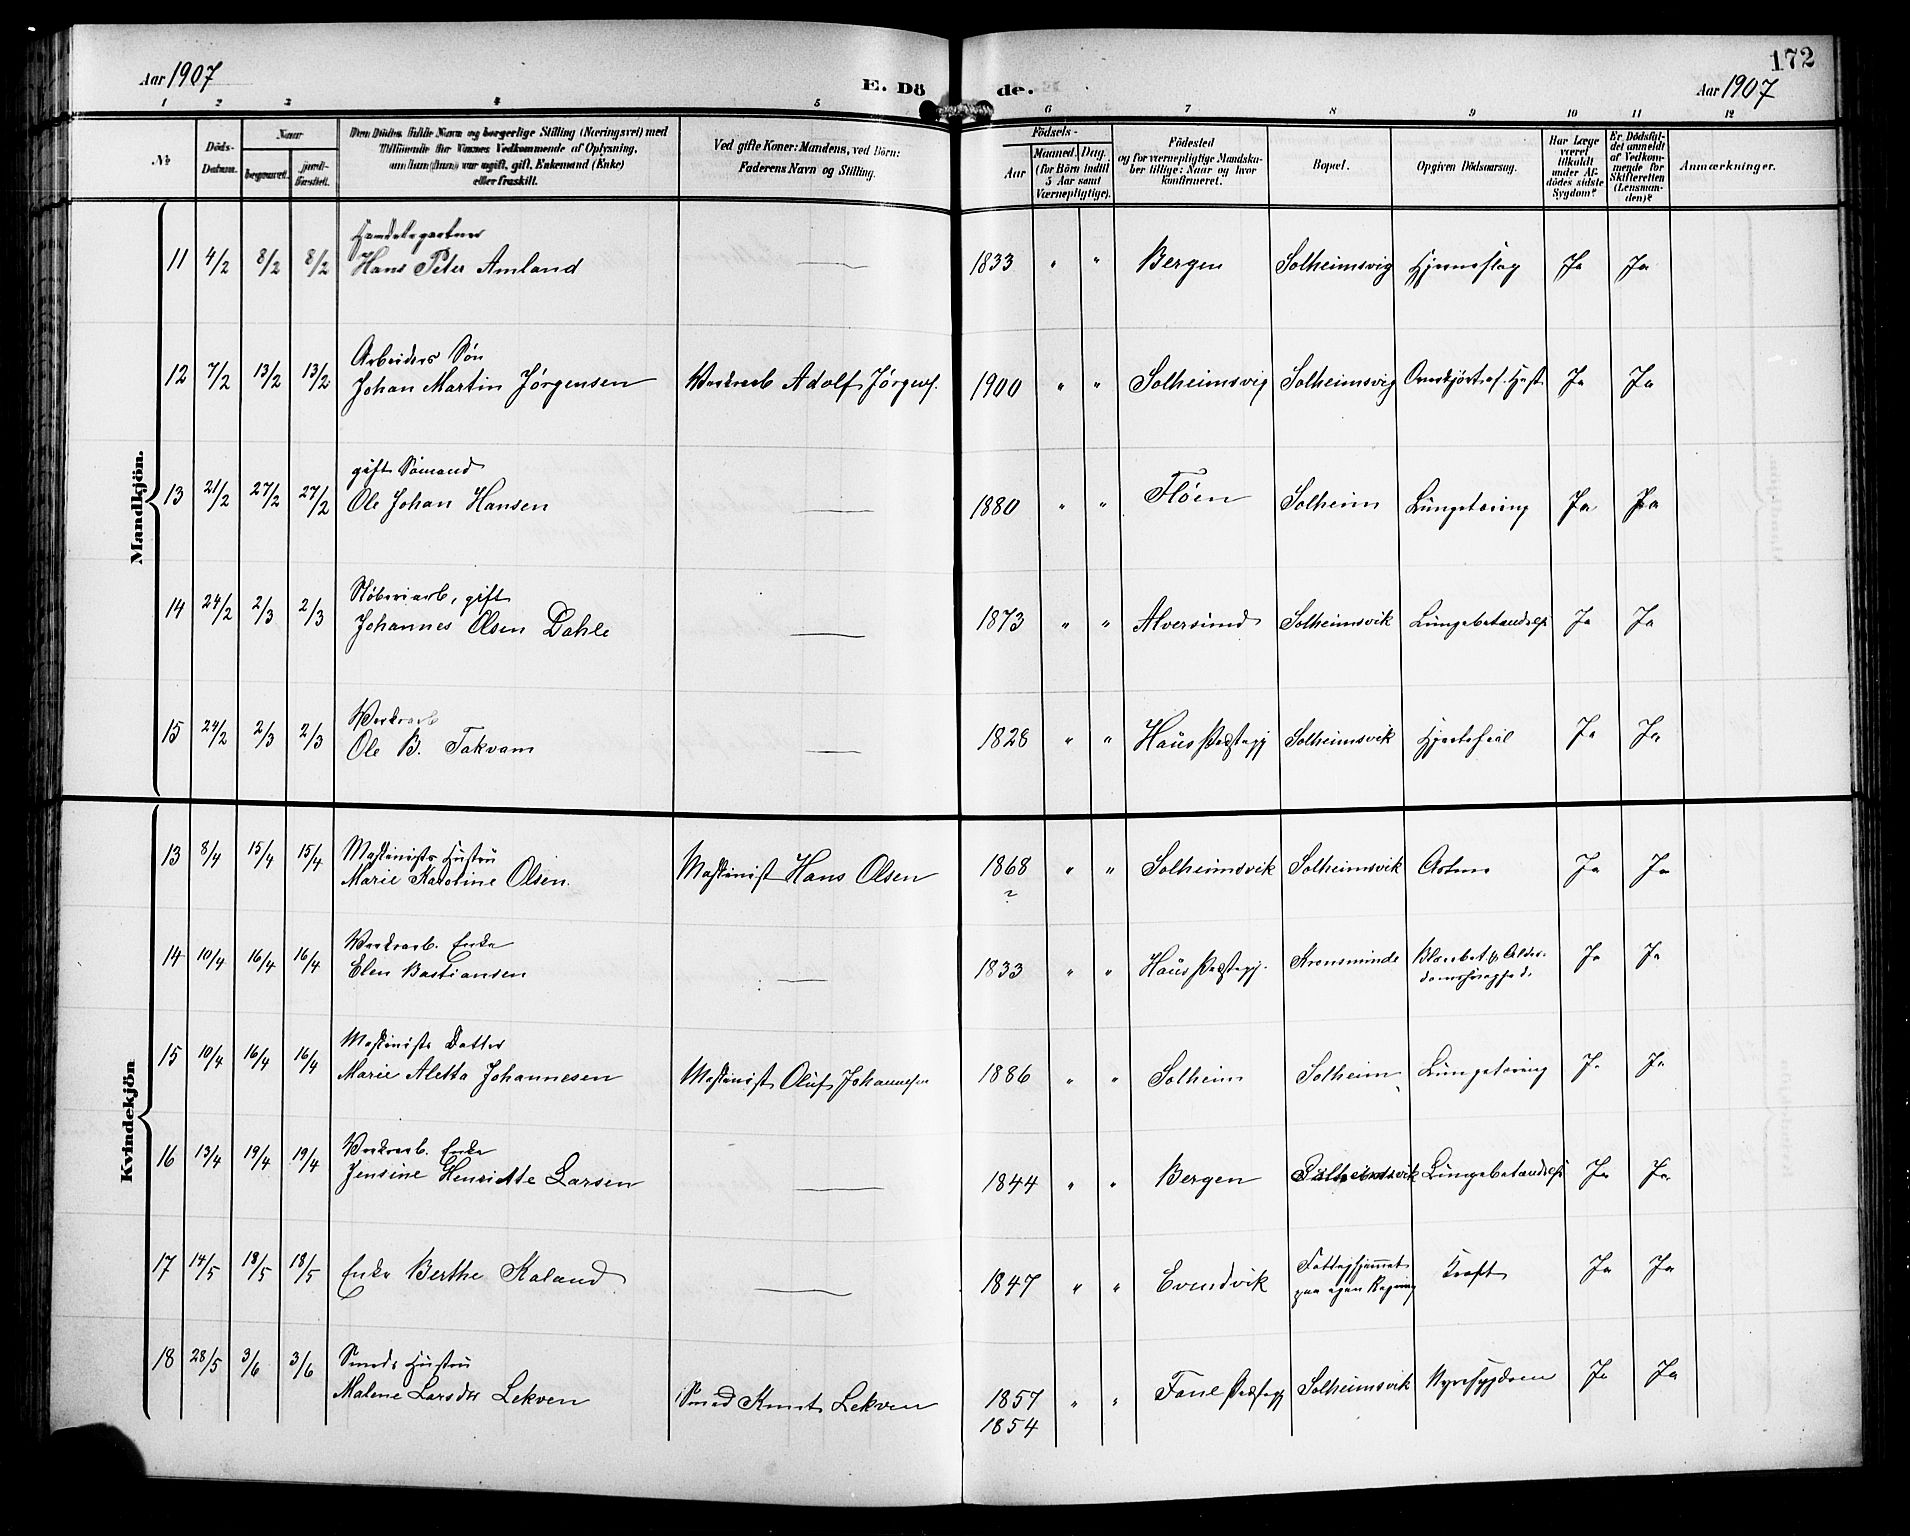 172
Aar 1907
E. Dö
de.
Aar 1907
1 2 3 4 5 6 7 8 9 10 11 12
No
Döds-Datum.
Naar
begravet.
jordfæstet.
Den Dödes fulde Navn og borgerlige Stilling (Næringsvei) med
Tilföiende for Voxnes Vedkommende af Oplysning,
om han (hun) var ugift, gift, Enkemand (Enke)
eller fraskilt.
Ved gifte Koner: Mandens, ved Börn:
Faderens Navn og Stilling.
Födsels-
Aar
Maaned. Dag.
(for Börn indtil
5 Aar samt
Værnepligtige).
Födested
og for værnepligtige Mandska-
ber tillige: Naar og hvor
konfirmeret.
Bopæl.
Opgiven Dödsaarsag.
Har Læge
været
tilkaldt
under Af-
dödes sidste
Sygdom?
Er Dödsfal-
det anmeldt
af Vedkom-
mende for
Skifteretten
(Lensman-
den)?
Anmærkninger.
Mandkjön.
Handelsgartner
11 4/2 8/2 8/2 Hans Peter Amland — 1833 " " Bergen Solheimsvig Hjerneslag Ja Ja
Arbeiders Søn
12 7/2 13/2 13/2 Johan Martin Jørgensen Verksarb Adolf Jørgens. 1900 " " Solheimsvig Solheimsvig Overkjørt af Hest Ja Ja
gift Sømand
13 21/2 27/2 27/2 Ole Johan Hansen — 1880 " " Fløen Solheim Lungetæring Ja Ja
Støberiarb, gift
14 24/2 2/3 2/3 Johannes Olsen Dahle — 1873 " " Alversund Solheimsvik Lungebetændelse Ja Ja
Verksarb
15 24/2 2/3 2/3 Ole B. Takvam — 1828 " " Haus Præstegj Solheimsvik Hjertefeil Ja Ja
Kvindekjön
Maskinists Hustru
13 8/4 15/4 15/4 Marie Karoline Olsen. Maskinist Hans Olsen 1868 " " Solheimsvik Solheimsvik Astma Ja Ja
?
Verksarb. Enke
14 10/4 16/4 16/4 Elen Bastiansen — 1833 " " Haus Præstegj. Kronsminde Blærebet. & Alder-
domssvaghed. Ja Ja
Maskinists Datter
15 10/4 16/4 16/4 Marie Aletta Johannesen Maskinist Oluf Johannesen 1886 " " Solheim Solheim Lungetæring Ja Ja
Verksarb. Enke
16 13/4 19/4 19/4 Jensine Henriette Larsen — 1844 " " Bergen Solheimsvik Lungebetændelse Ja Ja
17 14/5 18/5 18/5 Enke Berthe Kaland — 1847 " " Evindvik Fattighjemmet
paa egen Regning Kræft Ja Ja
Smeds Hustru
18 28/5 3/6 3/6 Malene Larsdtr Lekven Smed Knut Lekven 1857 " " Fane Præstegj Solheimsvik Nyresygdom Ja Ja
1854